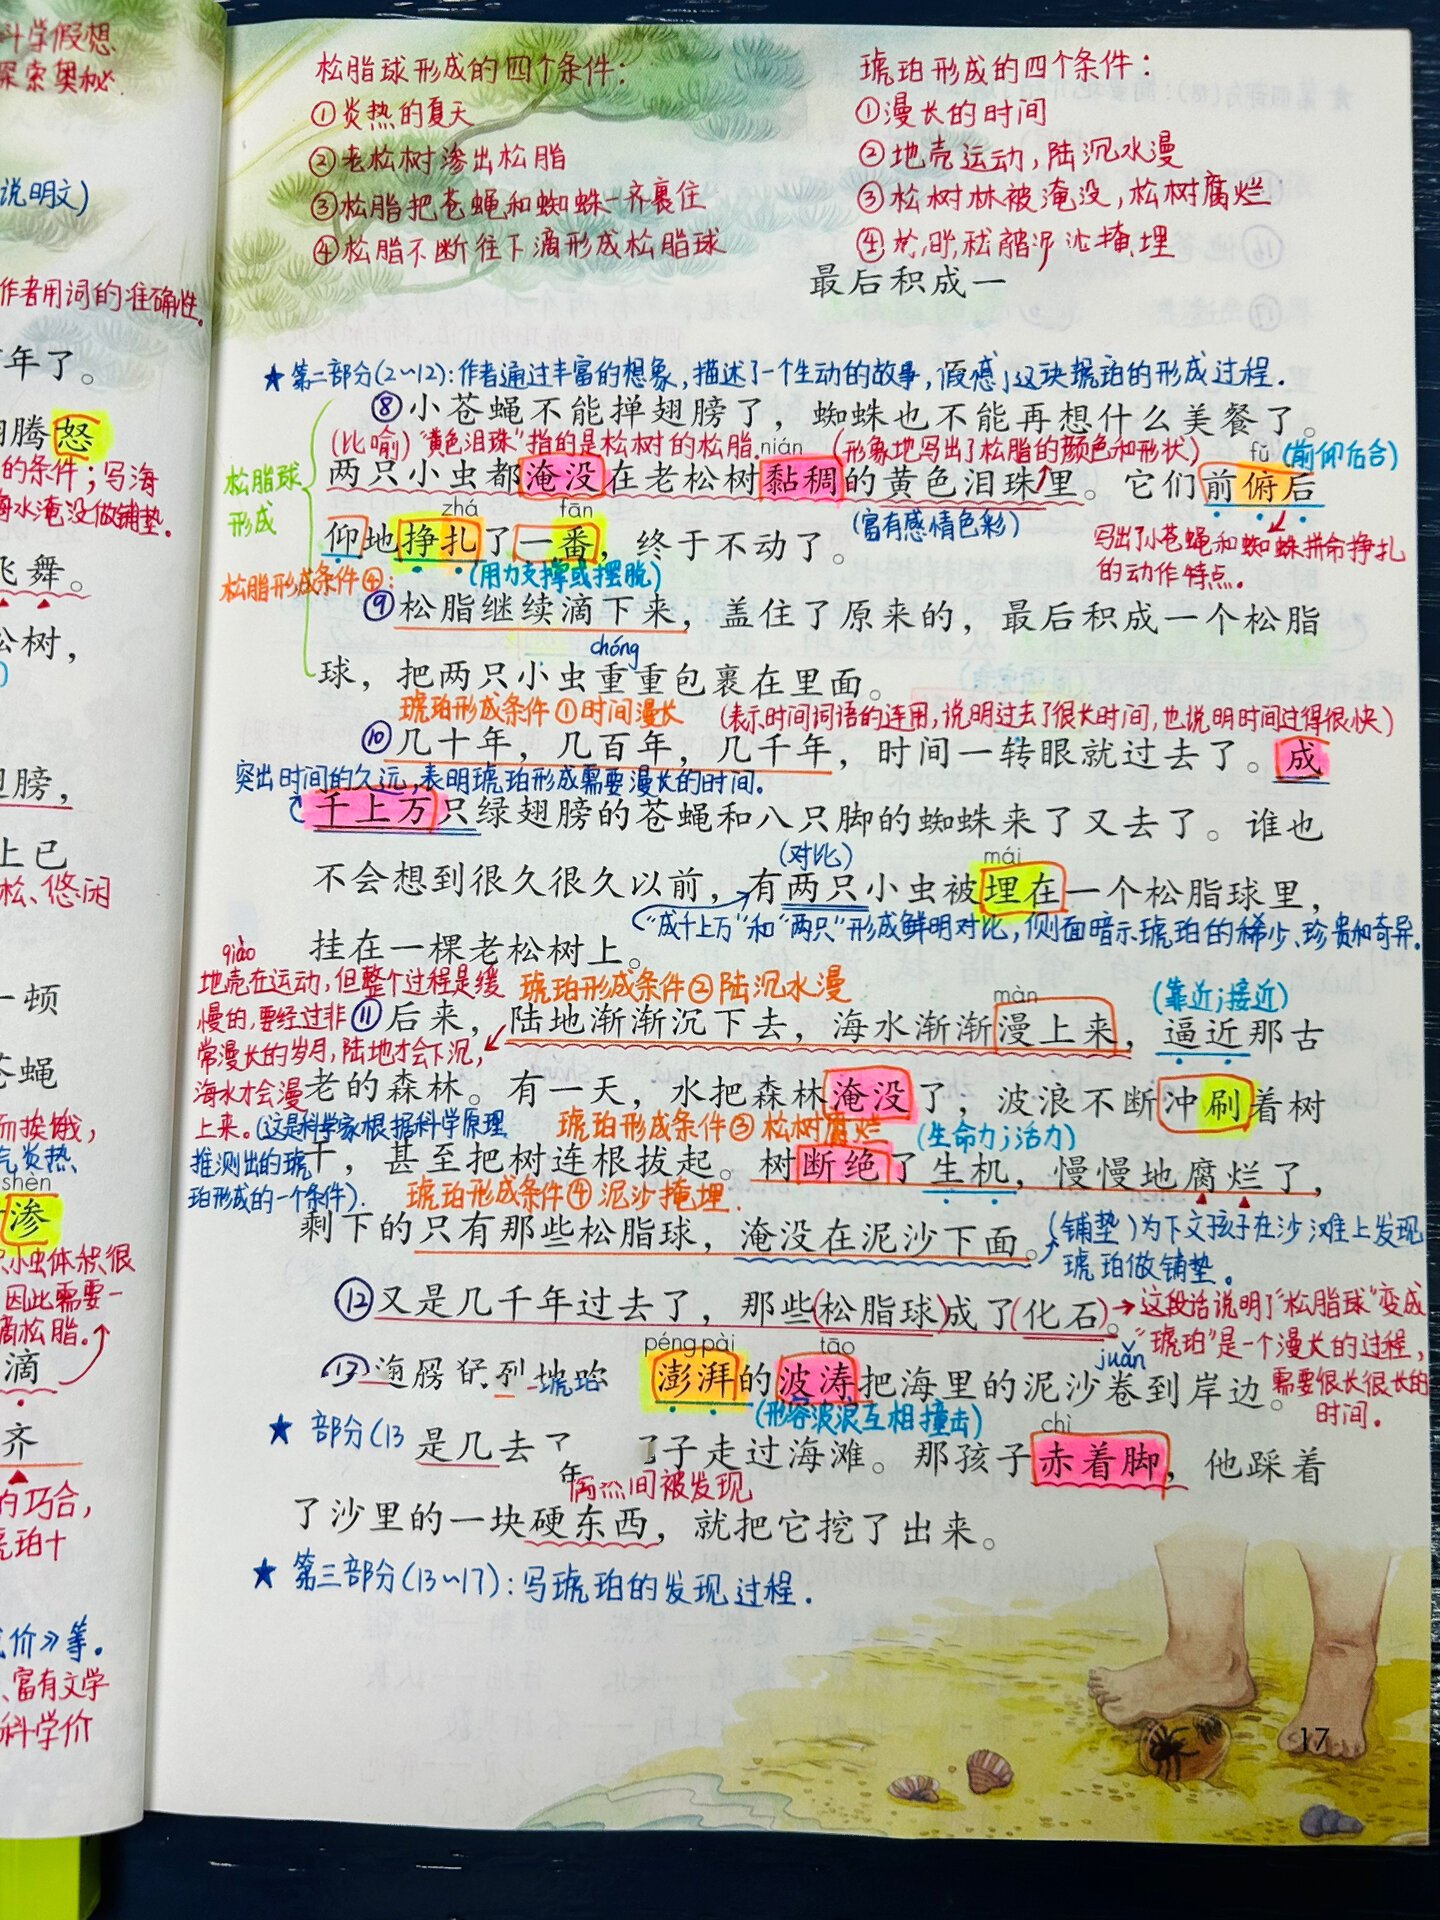 科学假想
探索奥秘.
说明文)
作者用词的准确性。
年了。
腾怒
的条件；写海
海水淹没做铺垫。
飞舞。
松树，
翅膀，
上已
松、悠闲
一顿
苍蝇
而挨饿，
气炎热、
shèn
渗
只小虫体积很
因此需要一
滴松脂。
滴
齐
的巧合，
琥珀十
价》等。
富有文学
科学价
松脂球形成的四个条件：
①炎热的夏天
②老松树渗出松脂
③松脂把苍蝇和蜘蛛一齐裹住
④松脂不断往下滴形成松脂球
琥珀形成的四个条件：
①漫长的时间
②地壳运动，陆沉水漫
③松树林被淹没，松树腐烂
④ 掩埋
最后积成一
★第二部分(2~12)：作者通过丰富的想象，描述了一个生动的故事， 这块琥珀的形成过程.
⑧小苍蝇不能掸翅膀了，蜘蛛也不能再想什么美餐了。
(比喻)“黄色泪珠”指的是松树的松脂. nián (形象地写出了松脂的颜色和形状) fǔ (前仰后合)
松脂球形成
两只小虫都淹没在老松树黏稠的黄色泪珠里。它们前俯后
zhá fān (富有感情色彩)
仰地挣扎了一番，终于不动了。
写出了小苍蝇和蜘蛛拼命挣扎的动作特点。
松脂形成条件④： (用力支撑或摆脱)
⑨松脂继续滴下来，盖住了原来的，最后积成一个松脂
chóng
球，把两只小虫重重包裹在里面。
琥珀形成条件①时间漫长 (表示时间词语的连用，说明过去了很长时间，也说明时间过得很快)
⑩几十年，几百年，几千年，时间一转眼就过去了。成
突出时间的久远，表明琥珀形成需要漫长的时间.
千上万只绿翅膀的苍蝇和八只脚的蜘蛛来了又去了。谁也
(对比) mái
不会想到很久很久以前，有两只小虫被埋在一个松脂球里，
“成千上万”和“两只”形成鲜明对比，侧面暗示琥珀的稀少、珍贵和奇异.
挂在一棵老松树上。
qiào
地壳在运动，但整个过程是缓
慢的，要经过非
常漫长的岁月，陆地才会下沉，
海水才会漫
上来。(这是科学家根据科学原理
推测出的琥
珀形成的一个条件).
琥珀形成条件②陆沉水漫 màn (靠近；接近)
⑪后来，陆地渐渐沉下去，海水渐渐漫上来，逼近那古
老的森林。有一天，水把森林淹没了，波浪不断冲刷着树
琥珀形成条件③松树腐烂 (生命力；活力)
干，甚至把树连根拔起。树断绝了生机，慢慢地腐烂了，
琥珀形成条件④泥沙掩埋.
剩下的只有那些松脂球，淹没在泥沙下面。
(铺垫)为下文孩子在沙滩上发现
琥珀做铺垫。
⑫又是几千年过去了，那些(松脂球)成了(化石)。
→这段话说明了“松脂球”变成
“琥珀”是一个漫长的过程，
需要很长很长的
时间.
péng pài tāo juǎn
⑬ 地 澎湃的波涛把海里的泥沙卷到岸边。
(形容波浪互相撞击)
★ 部分(13
chì
是几 去了 子走过海滩。那孩子赤着脚，他踩着
年
间被发现
了沙里的一块硬东西，就把它挖了出来。
★第三部分(13~17)：写琥珀的发现过程.
17